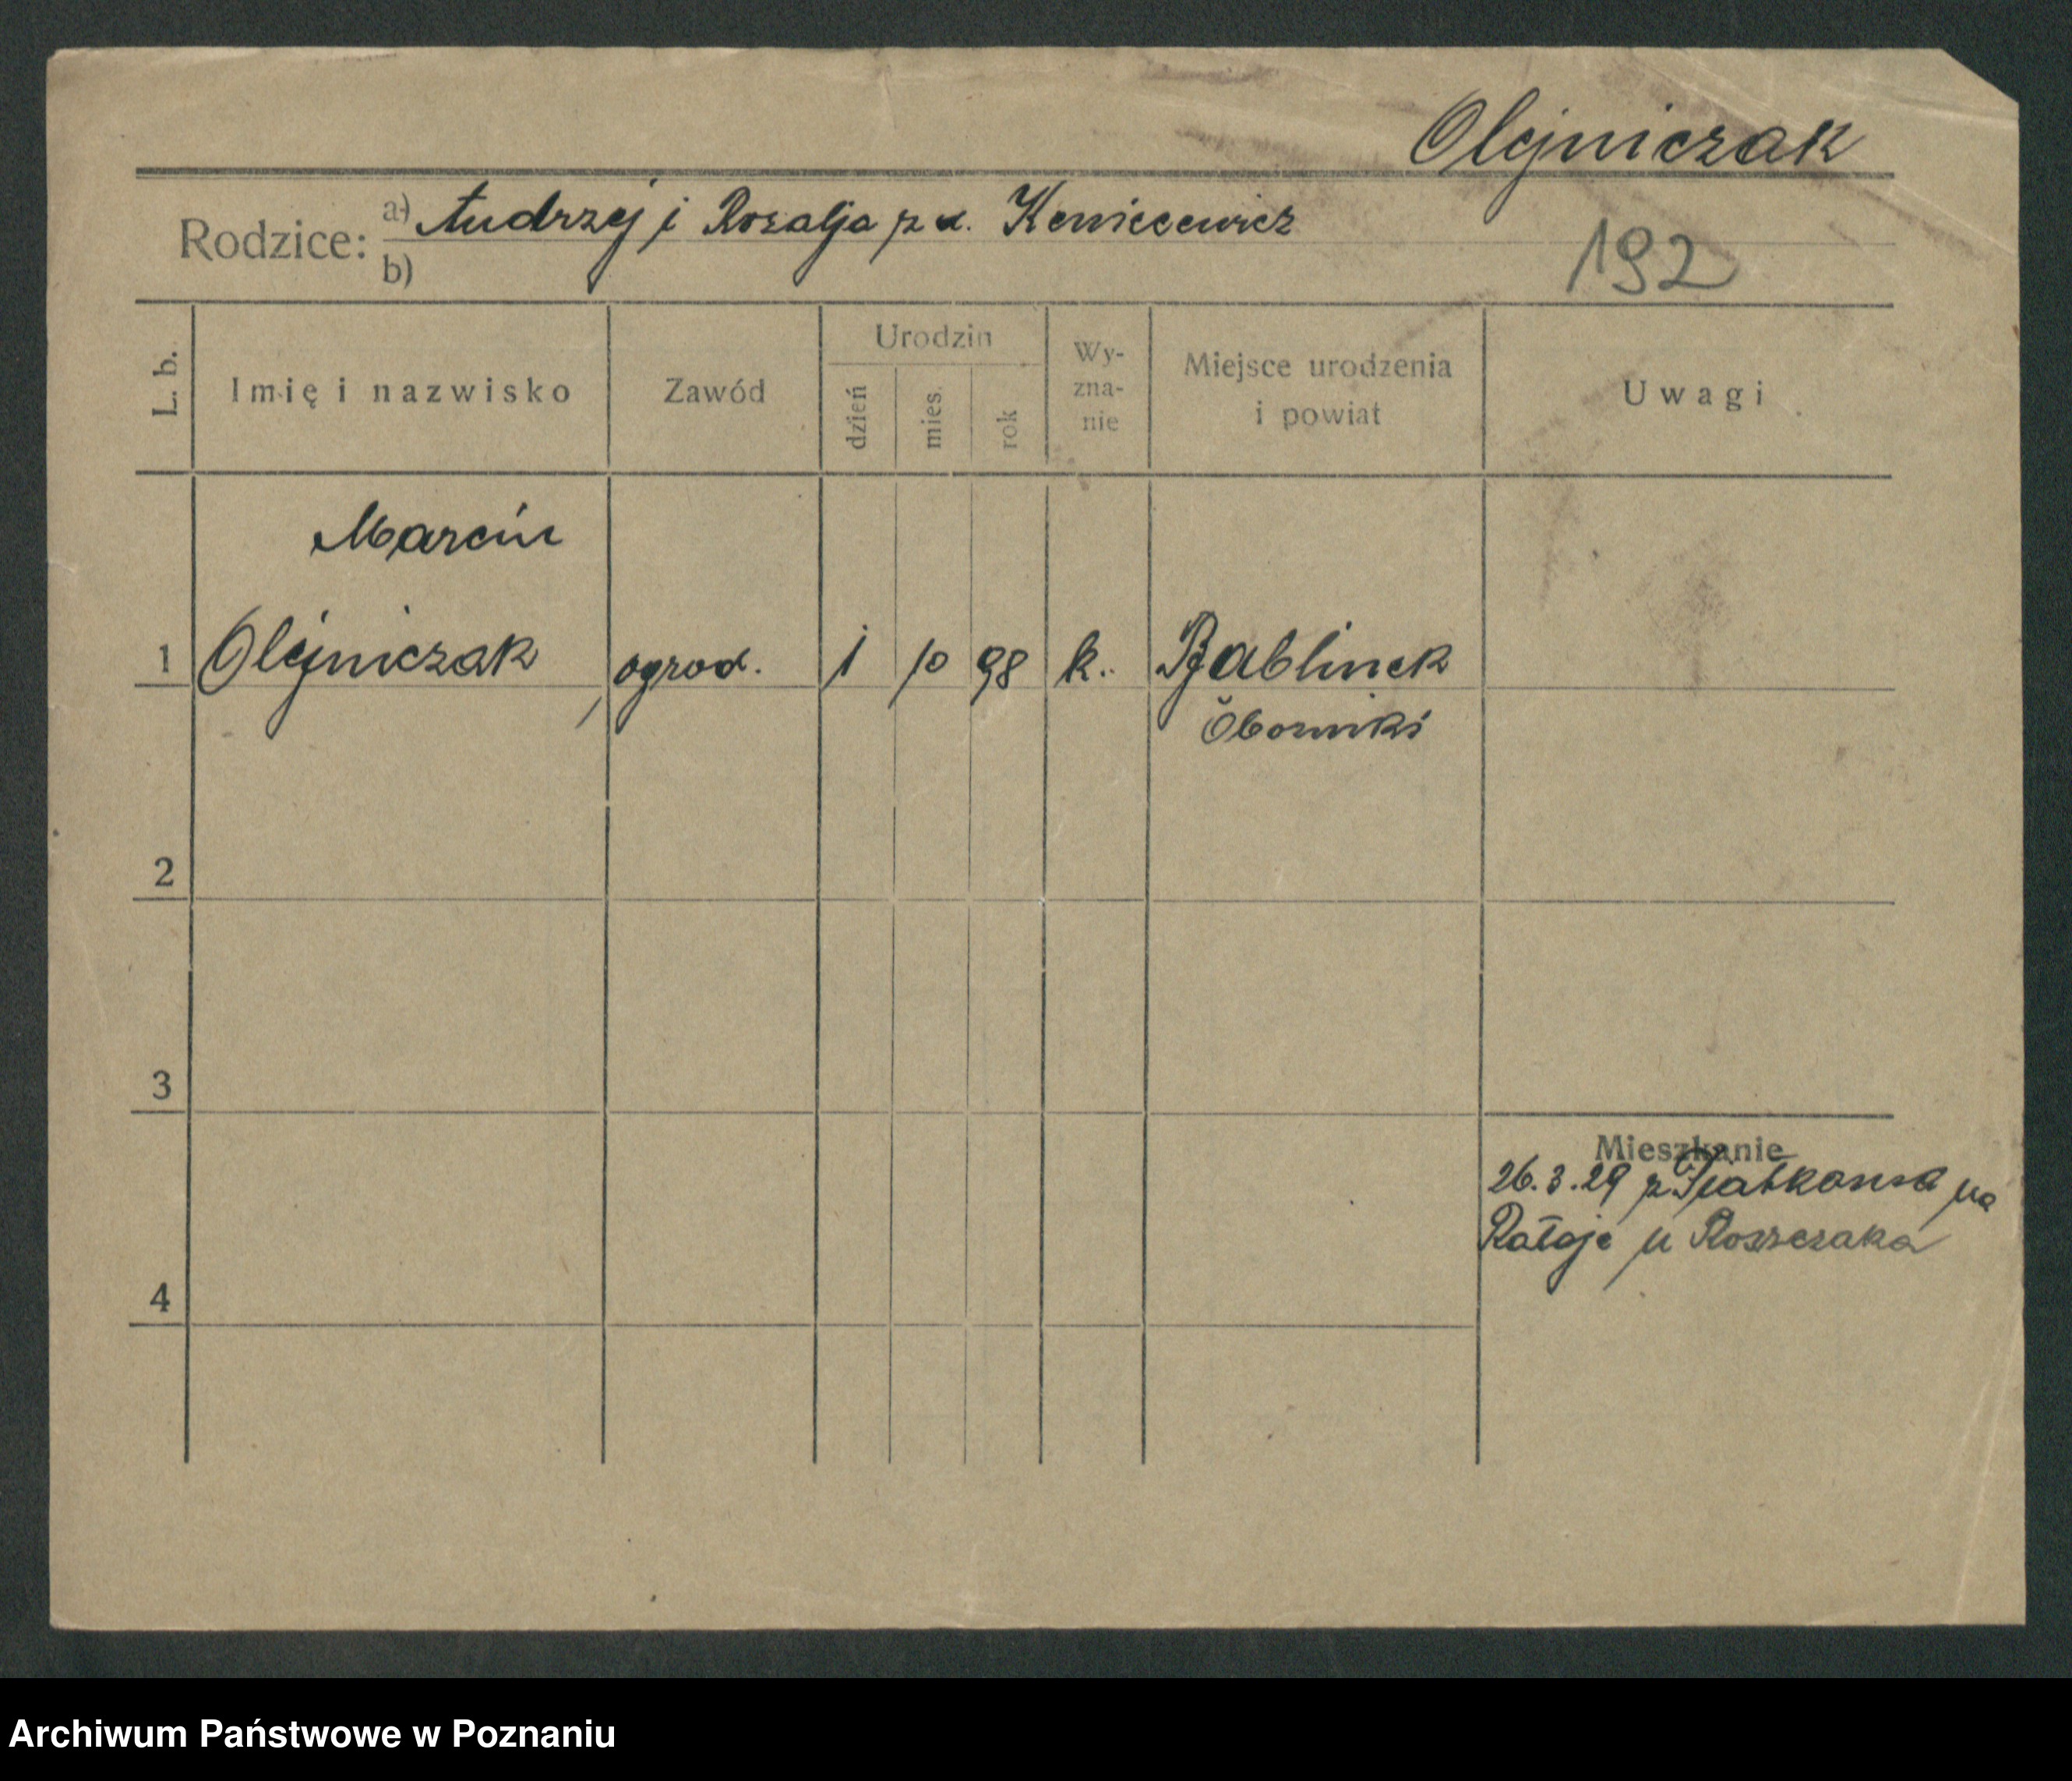 Olejniczak
Rodzice: a) Andrzej i Rozalja z d.
b)
192
L. b. Imię i nazwisko Zawód Urodzin dzień mies. rok Wy-zna-nie Miejsce urodzenia i powiat Uwagi
Marcin
1 Olejniczak, ogrod. 1 10 98 k. Bąblinek
Oborniki
2
3
Mieszkanie
26.3.29 z Piątkowa na
Rataje u Roszczaka
4
Archiwum Państwowe w Poznaniu